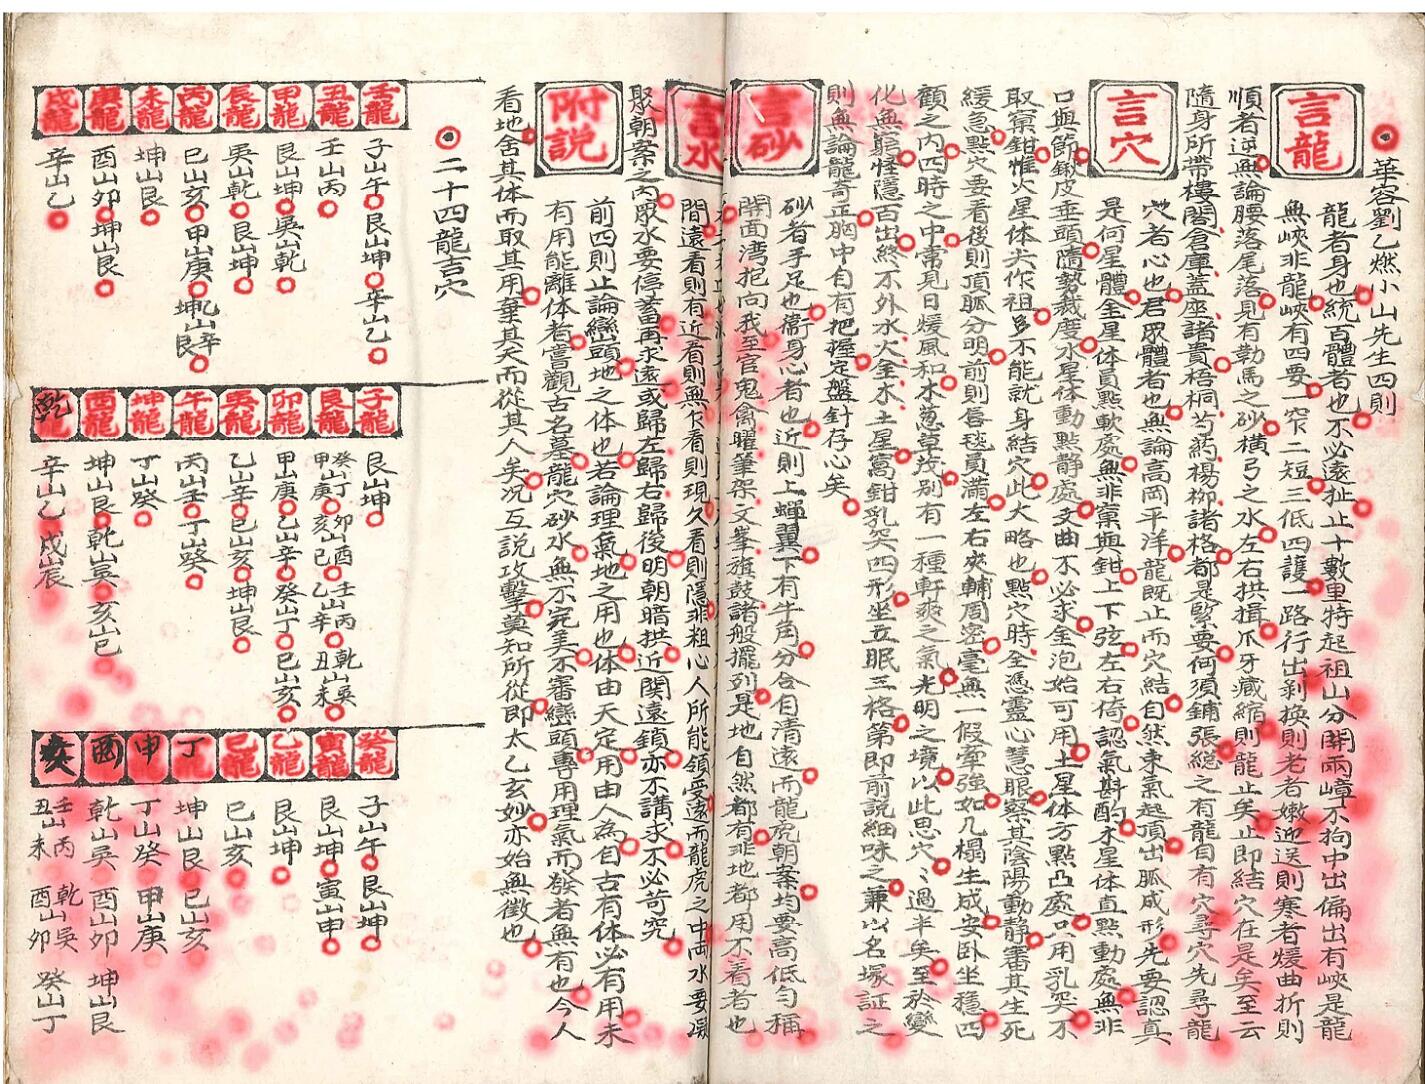 華容劉乙燃小山先生四則
言龍
龍者身也統百體者也不必遠扯止十數里特起祖山分開兩嶂不拘中出偏出有峽是龍
無峽非龍峽有四要一窄二短三低四護一路行出剥換則老者嫩迎送則寒者煖曲折則
順者逆無論腰落尾落見有勒馬之砂橫弓之水左右拱揖爪牙藏縮則龍止矣止即結穴在是矣至云
隨身所帶樓閣倉庫蓋座諸貴梧桐芍藥楊柳諸格都是緊要何須鋪張総之有龍自有穴尋穴先尋龍
言穴
穴者心也君眾體者也無論高岡平洋龍既止而穴結自然束氣起頂出脈成形先要認真
是何星體金星体員點軟處無非窠與鉗上下弦左右倚認氣斟酌木星体直點動處無非
口與節鍬皮垂頭隨勢裁度水星体動點静處文曲不必求金泡始可用土星体方點凸處只用乳突不
取窠鉗惟火星体尖作祖多不能就身結穴此大略也點穴時全憑靈心慧眼察其陰陽動静審其生死
緩急點穴要看後則頂脈分明前則唇毯員滿左右夾輔周密毫無一假牽強如几榻生成安卧坐穩四
顧之内四時之中常見日煖風和木葱草茂别有一種軒爽之氣光明之境以此思穴〻過半矣至於變
化無窮怪隱百出終不外水火金木土星窩鉗乳突四形坐立眠三格第即前説細味之兼以名塚証之
則無論龍奇正胸中自有把握定盤針存心矣
言砂
砂者手足也衛身心者也近則上蟬翼下有牛角分合自清遠而龍虎朝案均要高低勻稱
開面湾抱向我至官鬼禽曜筆架文峯旗鼓諸般擺列是地自然都有非地都用不着者也
言水
間遠看則有近看則無乍看則現久看則隱非粗心人所能領受遠而龍虎之中兩水要凝
聚朝案之内眾水要停蓄再求遠或歸左歸右歸後明朝暗拱近関遠鎖亦不講求不必苛究
附説
前四則止論巒頭地之体也若論理氣地之用也体由天定用由人為自古有体必有用未
有用能離体者嘗觀古名墓龍穴砂水無不完美不審巒頭專用理氣而發者無有也今人
看地舍其体而取其用棄其天而從其人矣况互説攻擊莫知所從即太乙玄妙亦始無徵也
二十四龍吉穴
壬龍 子山午 艮山坤 辛山乙
丑龍 壬山丙
甲龍 艮山坤 巽山乾
辰龍 巽山乾 艮山坤
丙龍 巳山亥 甲山庚 坤山艮 乙山辛
未龍 坤山艮
庚龍 酉山卯 坤山艮
戌龍 辛山乙
子龍 艮山坤
艮龍 癸山丁 卯山酉 壬山丙 乾山巽 甲山庚 亥山巳 乙山辛 丑山未
卯龍 甲山庚 乙山辛 癸山丁 巳山亥
巽龍 乙山辛 巳山亥 坤山艮
午龍 丙山壬 丁山癸
坤龍 丁山癸
酉龍 坤山艮 乾山巽 亥山巳
乾龍 辛山乙 戌山辰
癸龍 子山午 艮山坤
寅龍 艮山坤 寅山申
乙龍 艮山坤
巳龍 巳山亥
丁 坤山艮 巳山亥
申 丁山癸 甲山庚
酉 乾山巽 酉山卯 坤山艮
亥 壬山丙 乾山巽 丑山未 酉山卯 癸山丁